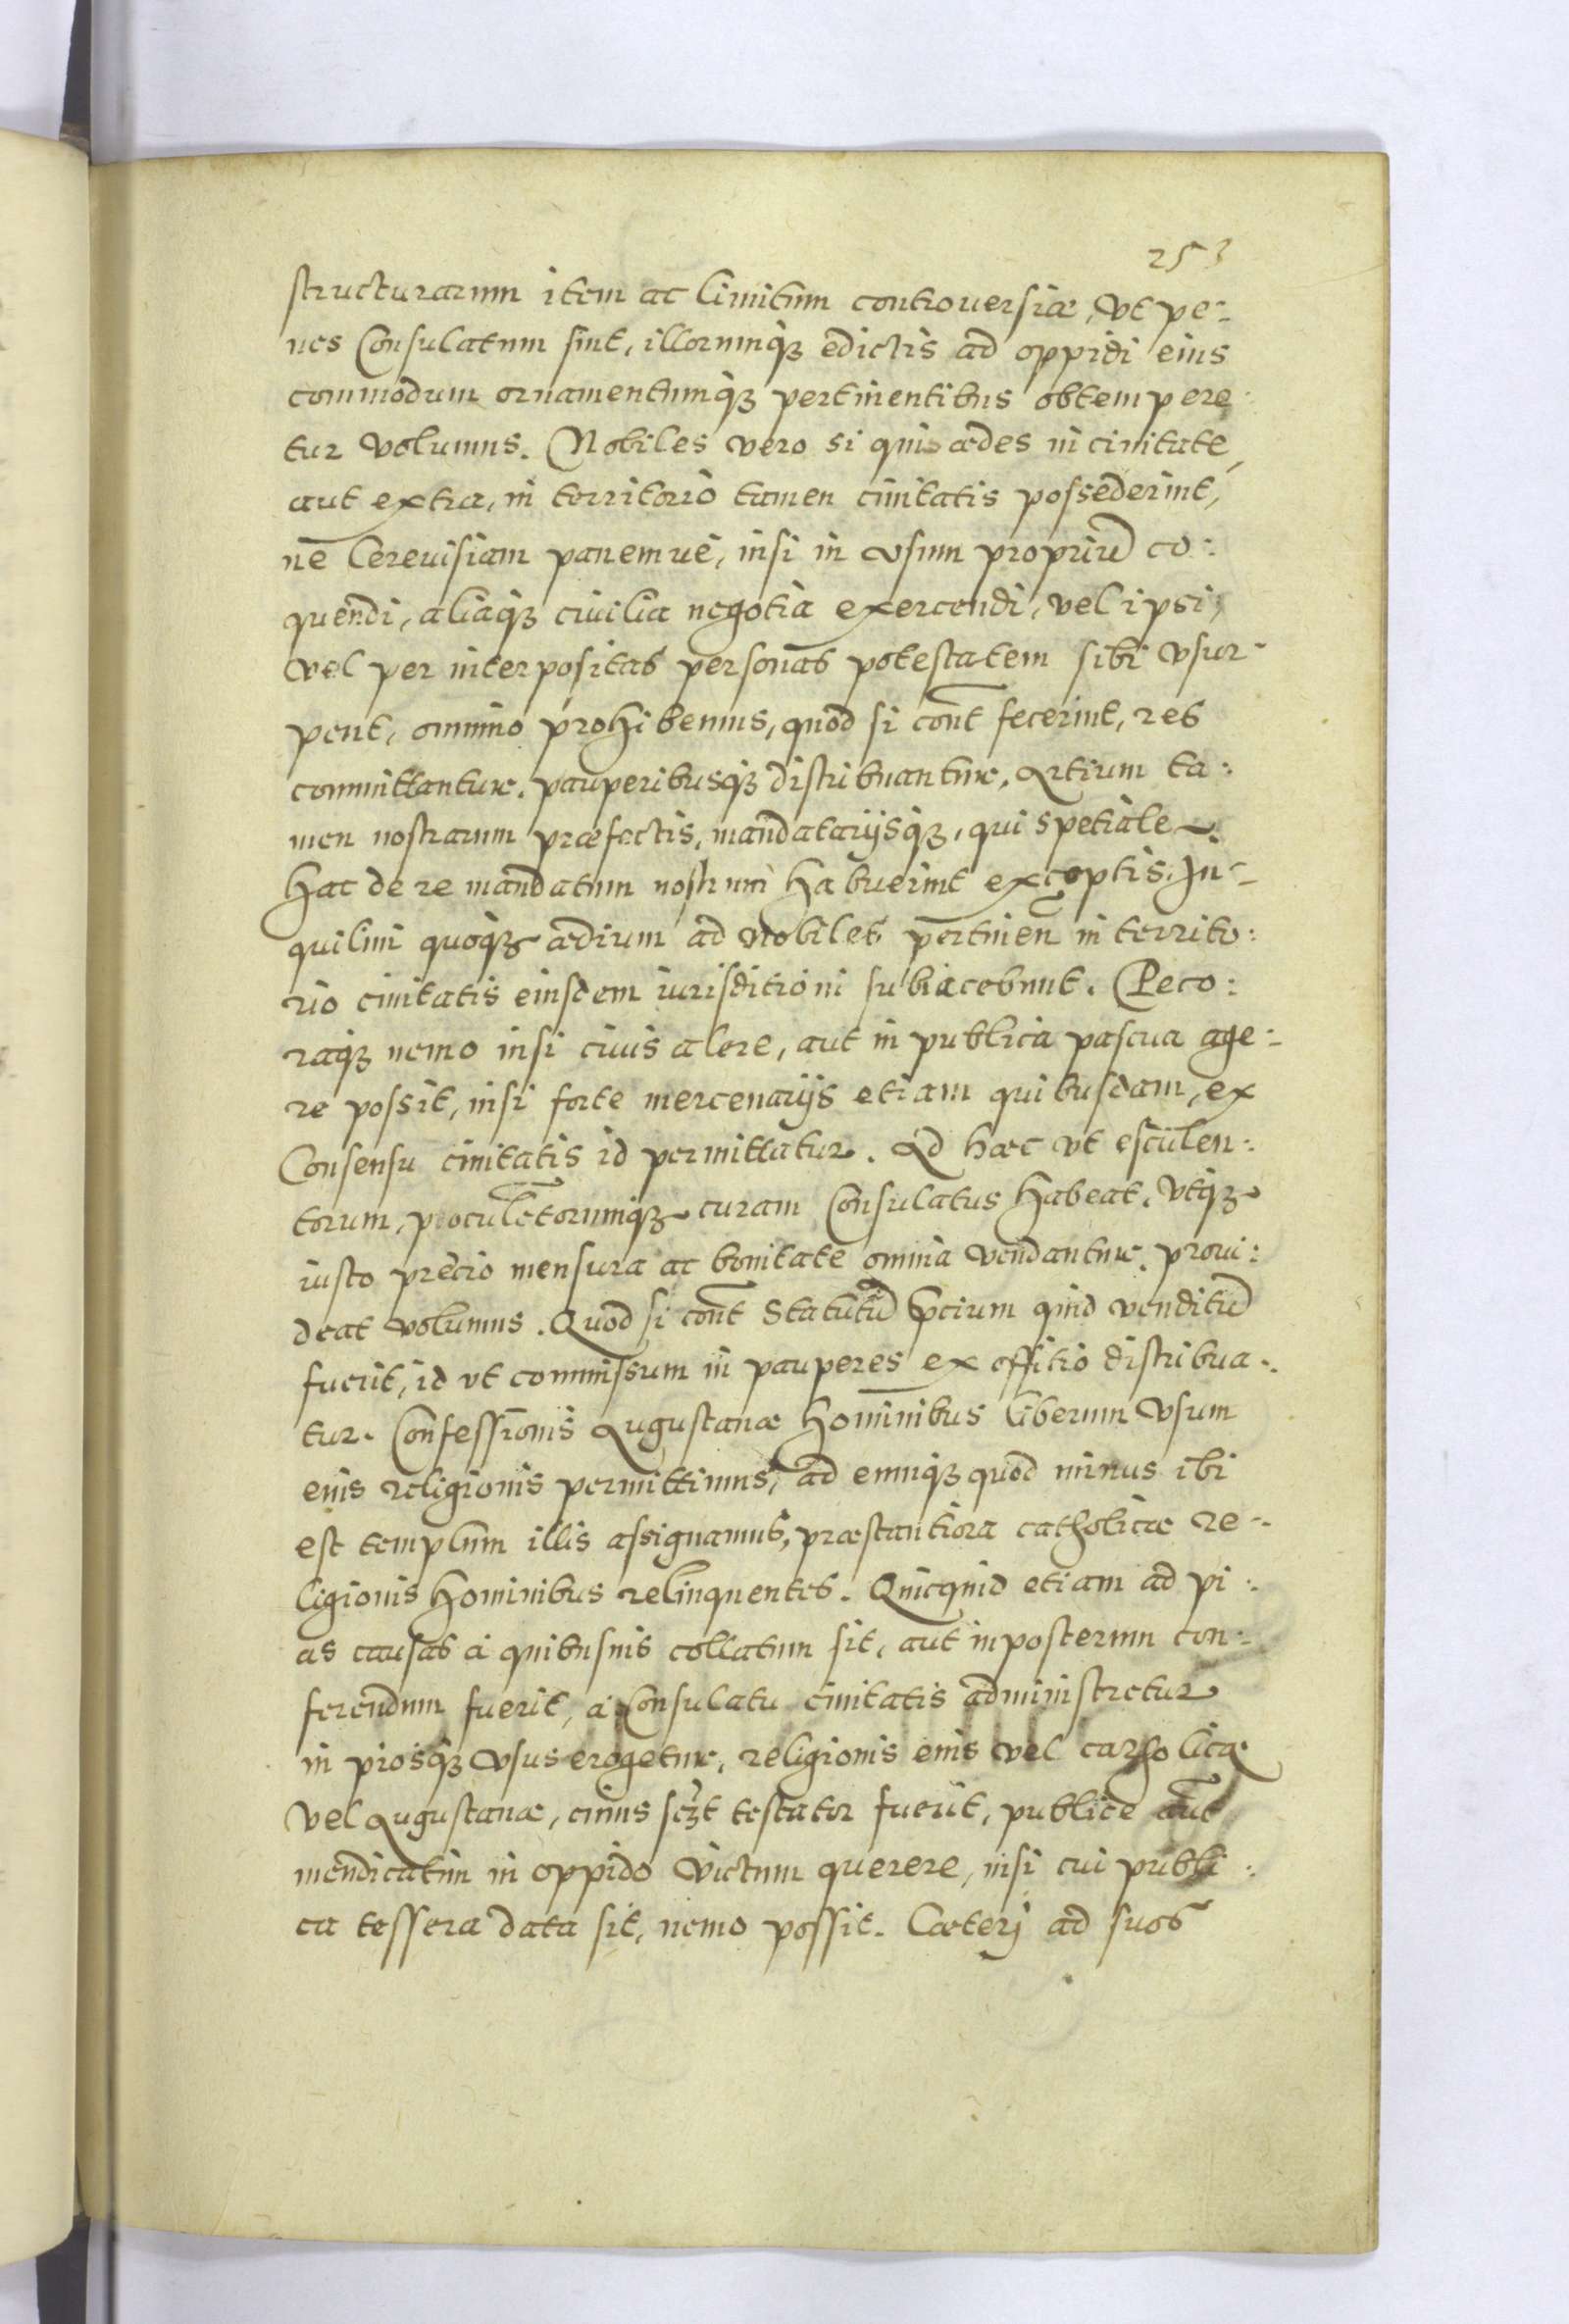 253
structurarum item ac limitum controuersiæ, vt pe:
nes Consulatum sint, illorumqꝫ edictis ad oppidi eius
commodum ornamentumqꝫ pertinentibus obtempere:
tur volumus. Nobiles vero si qui ædes in ciuitate,
aut extra, in territorio tamen ciuitatis possederint,
ne Cereuisiam panemue, nisi in vsum propriū co:
quendi, aliaqꝫ ciuilia negotia exercendi, vel ipsi,
vel per interpositas personas potestatem sibi vsur-
pent, omnino prohibemus, quod si cont̄ fecerint, res
committantur, pauperibusqꝫ distribuantur, Artium ta:
men nostrarum præfectis, mandatarijsqꝫ, qui spetiale
hac de re mandatum nostrum habuerint exceptis. In-
quilini quoqꝫ ædium ad nobiles pertinen̄ in territo:
rio ciuitatis eiusdem iurisditioni subiacebunt. Peco:
raqꝫ nemo nisi ciuis alere, aut in publica pascua age:
re possit, nisi forte mercenarijs etiam quibusdam, ex
Consensu ciuitatis id permittatur. Ad hæc vt esculen:
torum, poculētorumqꝫ curam Consulatus habeat, vtqꝫ
iusto precio mensura ac bonitate omnia vendantur, proui:
deat volumus. Quod si cont̄ statutū p̄cium quid venditū
fuerit, id vt commissum in pauperes ex offitio distribua:
tur. Confessionis Augustanæ hominibus liberum vsum
eius religionis permittimus, ad eumqꝫ quod minus ibi
est templum illis assignamus, præstantiora catholicæ re-
ligionis hominibus relinquentes. Quicquid etiam ad pi:
as causas a quibusuis collatum sit, aut inposterum con:
ferendum fuerit, a Consulatu ciuitatis administretur
in piosqꝫ vsus erogetur, religionis eius vel catholicæ
vel Augustanæ, cuius scꝫt testator fuerit, publice aūt
mendicatim in oppido victum querere, nisi cui publi:
ca tessera data sit, nemo possit. Cæterj ad suos